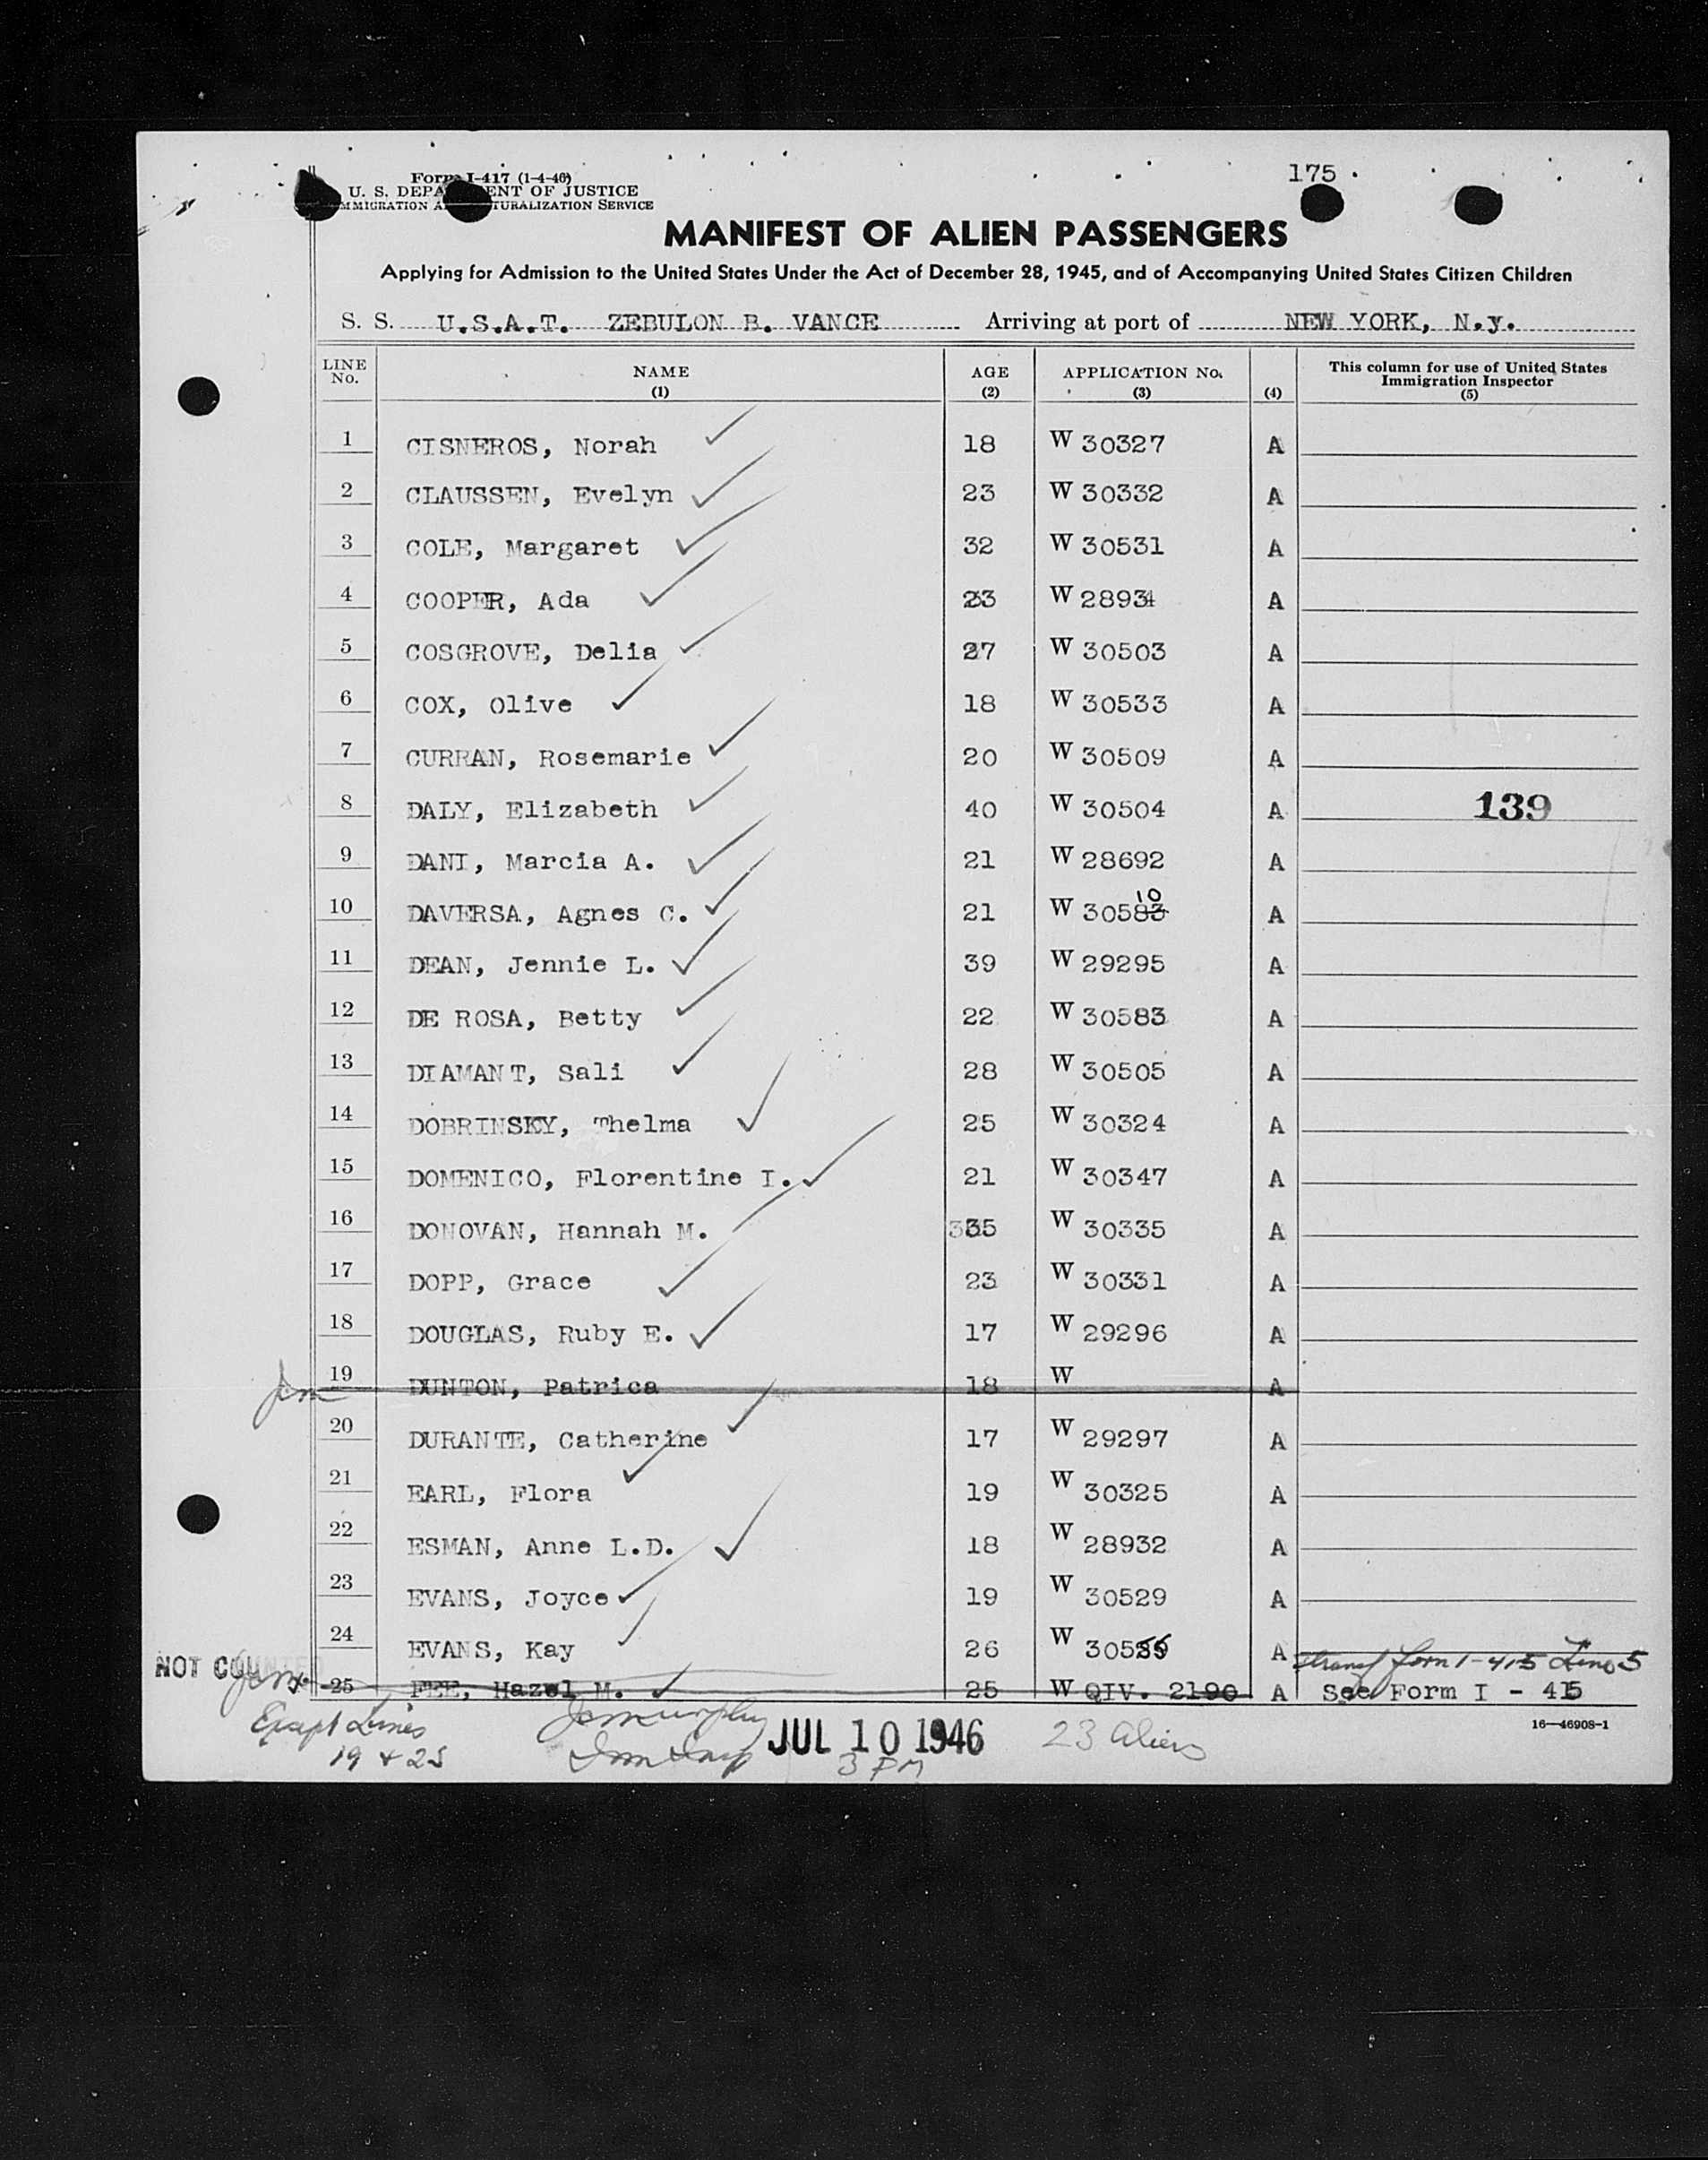 175
Form I-417 (1-4-46)
U. S. DEPA ENT OF JUSTICE
MMIGRATION A TURALIZATION SERVICE
MANIFEST OF ALIEN PASSENGERS
Applying for Admission to the United States Under the Act of December 28, 1945, and of Accompanying United States Citizen Children
S. S. U.S.A.T. ZEBULON B. VANCE Arriving at port of NEW YORK, N.y.
LINE No. NAME (1) AGE (2) APPLICATION No. (3) (4) This column for use of United States Immigration Inspector (5)
1 CISNEROS, Norah 18 W 30327 A
2 CLAUSSEN, Evelyn 23 W 30332 A
3 COLE, Margaret 32 W 30531 A
4 COOPER, Ada 23 W 28934 A
5 COSGROVE, Delia 27 W 30503 A
6 COX, Olive 18 W 30533 A
7 CURRAN, Rosemarie 20 W 30509 A
8 DALY, Elizabeth 40 W 30504 A 139
9 DANI, Marcia A. 21 W 28692 A
10 DAVERSA, Agnes C. 21 W 30583 10 A
11 DEAN, Jennie L. 39 W 29295 A
12 DE ROSA, Betty 22 W 30583 A
13 DIAMANT, Sali 28 W 30505 A
14 DOBRINSKY, Thelma 25 W 30324 A
15 DOMENICO, Florentine I. 21 W 30347 A
16 DONOVAN, Hannah M. 35 W 30335 A
17 DOPP, Grace 23 W 30331 A
18 DOUGLAS, Ruby E. 17 W 29296 A
19 DUNTON, Patrica 18 W A
20 DURANTE, Catherine 17 W 29297 A
21 EARL, Flora 19 W 30325 A
22 ESMAN, Anne L.D. 18 W 28932 A
23 EVANS, Joyce 19 W 30529 A
24 EVANS, Kay 26 W A
transf form I-415 Line 5
NOT COUNTED
25 FEE, Hazel M. 25 W QIV. 2190 A See Form I - 415
16—46908-1
Except Lines
19 + 25
JUL 10 1946
3 PM
23 aliens